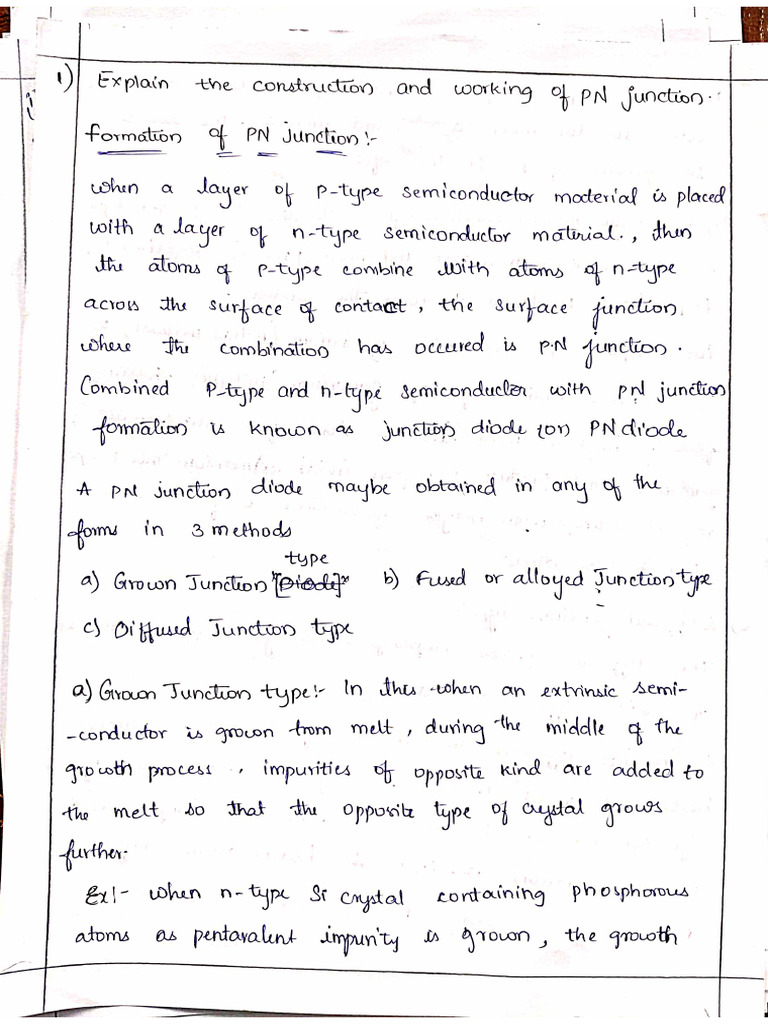 1) Explain the construction and working of PN junction.
formation of PN junction:-
when a layer of P-type semiconductor material is placed
with a layer of n-type semiconductor material., then
the atoms of P-type combine with atoms of n-type
across the surface of contact, the surface junction
where the combination has occured is P.N junction.
Combined P-type and n-type semiconductor with PN junction
formation is known as junction diode (or) PN diode
A PN junction diode maybe obtained in any of the
forms in 3 methods
type
a) Grown Junction "[Diode]" b) Fused or alloyed Junction type
c) Diffused Junction type
a) Grown Junction type:- In this when an extrinsic semi-
-conductor is grown from melt, during the middle of the
growth process, impurities of opposite kind are added to
the melt so that the opposite type of crystal grows
further.
Ex:- when n-type Si crystal containing phosphorous
atoms as pentavalent impurity is grown, the growth